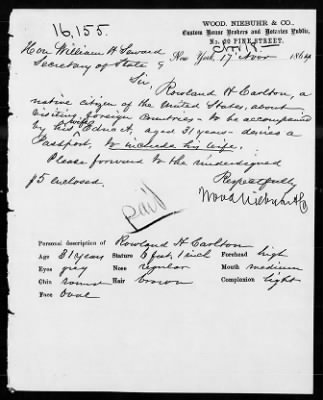 16,155.
WOOD, NIEBUHR & CO.,
Custom House Brokers and Notaries Public,
No. 90 PINE STREET.
Hon William H Seward New York, 17" Novr 1864
Secretary of State
Sir,
Rowland H Carlton, a
native citizen of the United States, about
visiting foreign countries - to be accompanied
wife
by his Edna C., aged 31 years - desires a
Passport, to include his wife.
Please forward to the undersigned
$5 enclosed.
Respectfully
Wood Niebuhr & Co
paid
Personal description of Rowland H Carlton
Age 31 years Stature 6 feet, 1 inch Forehead high
Eyes grey Nose regular Mouth medium
Chin round Hair brown Complexion light
Face Oval